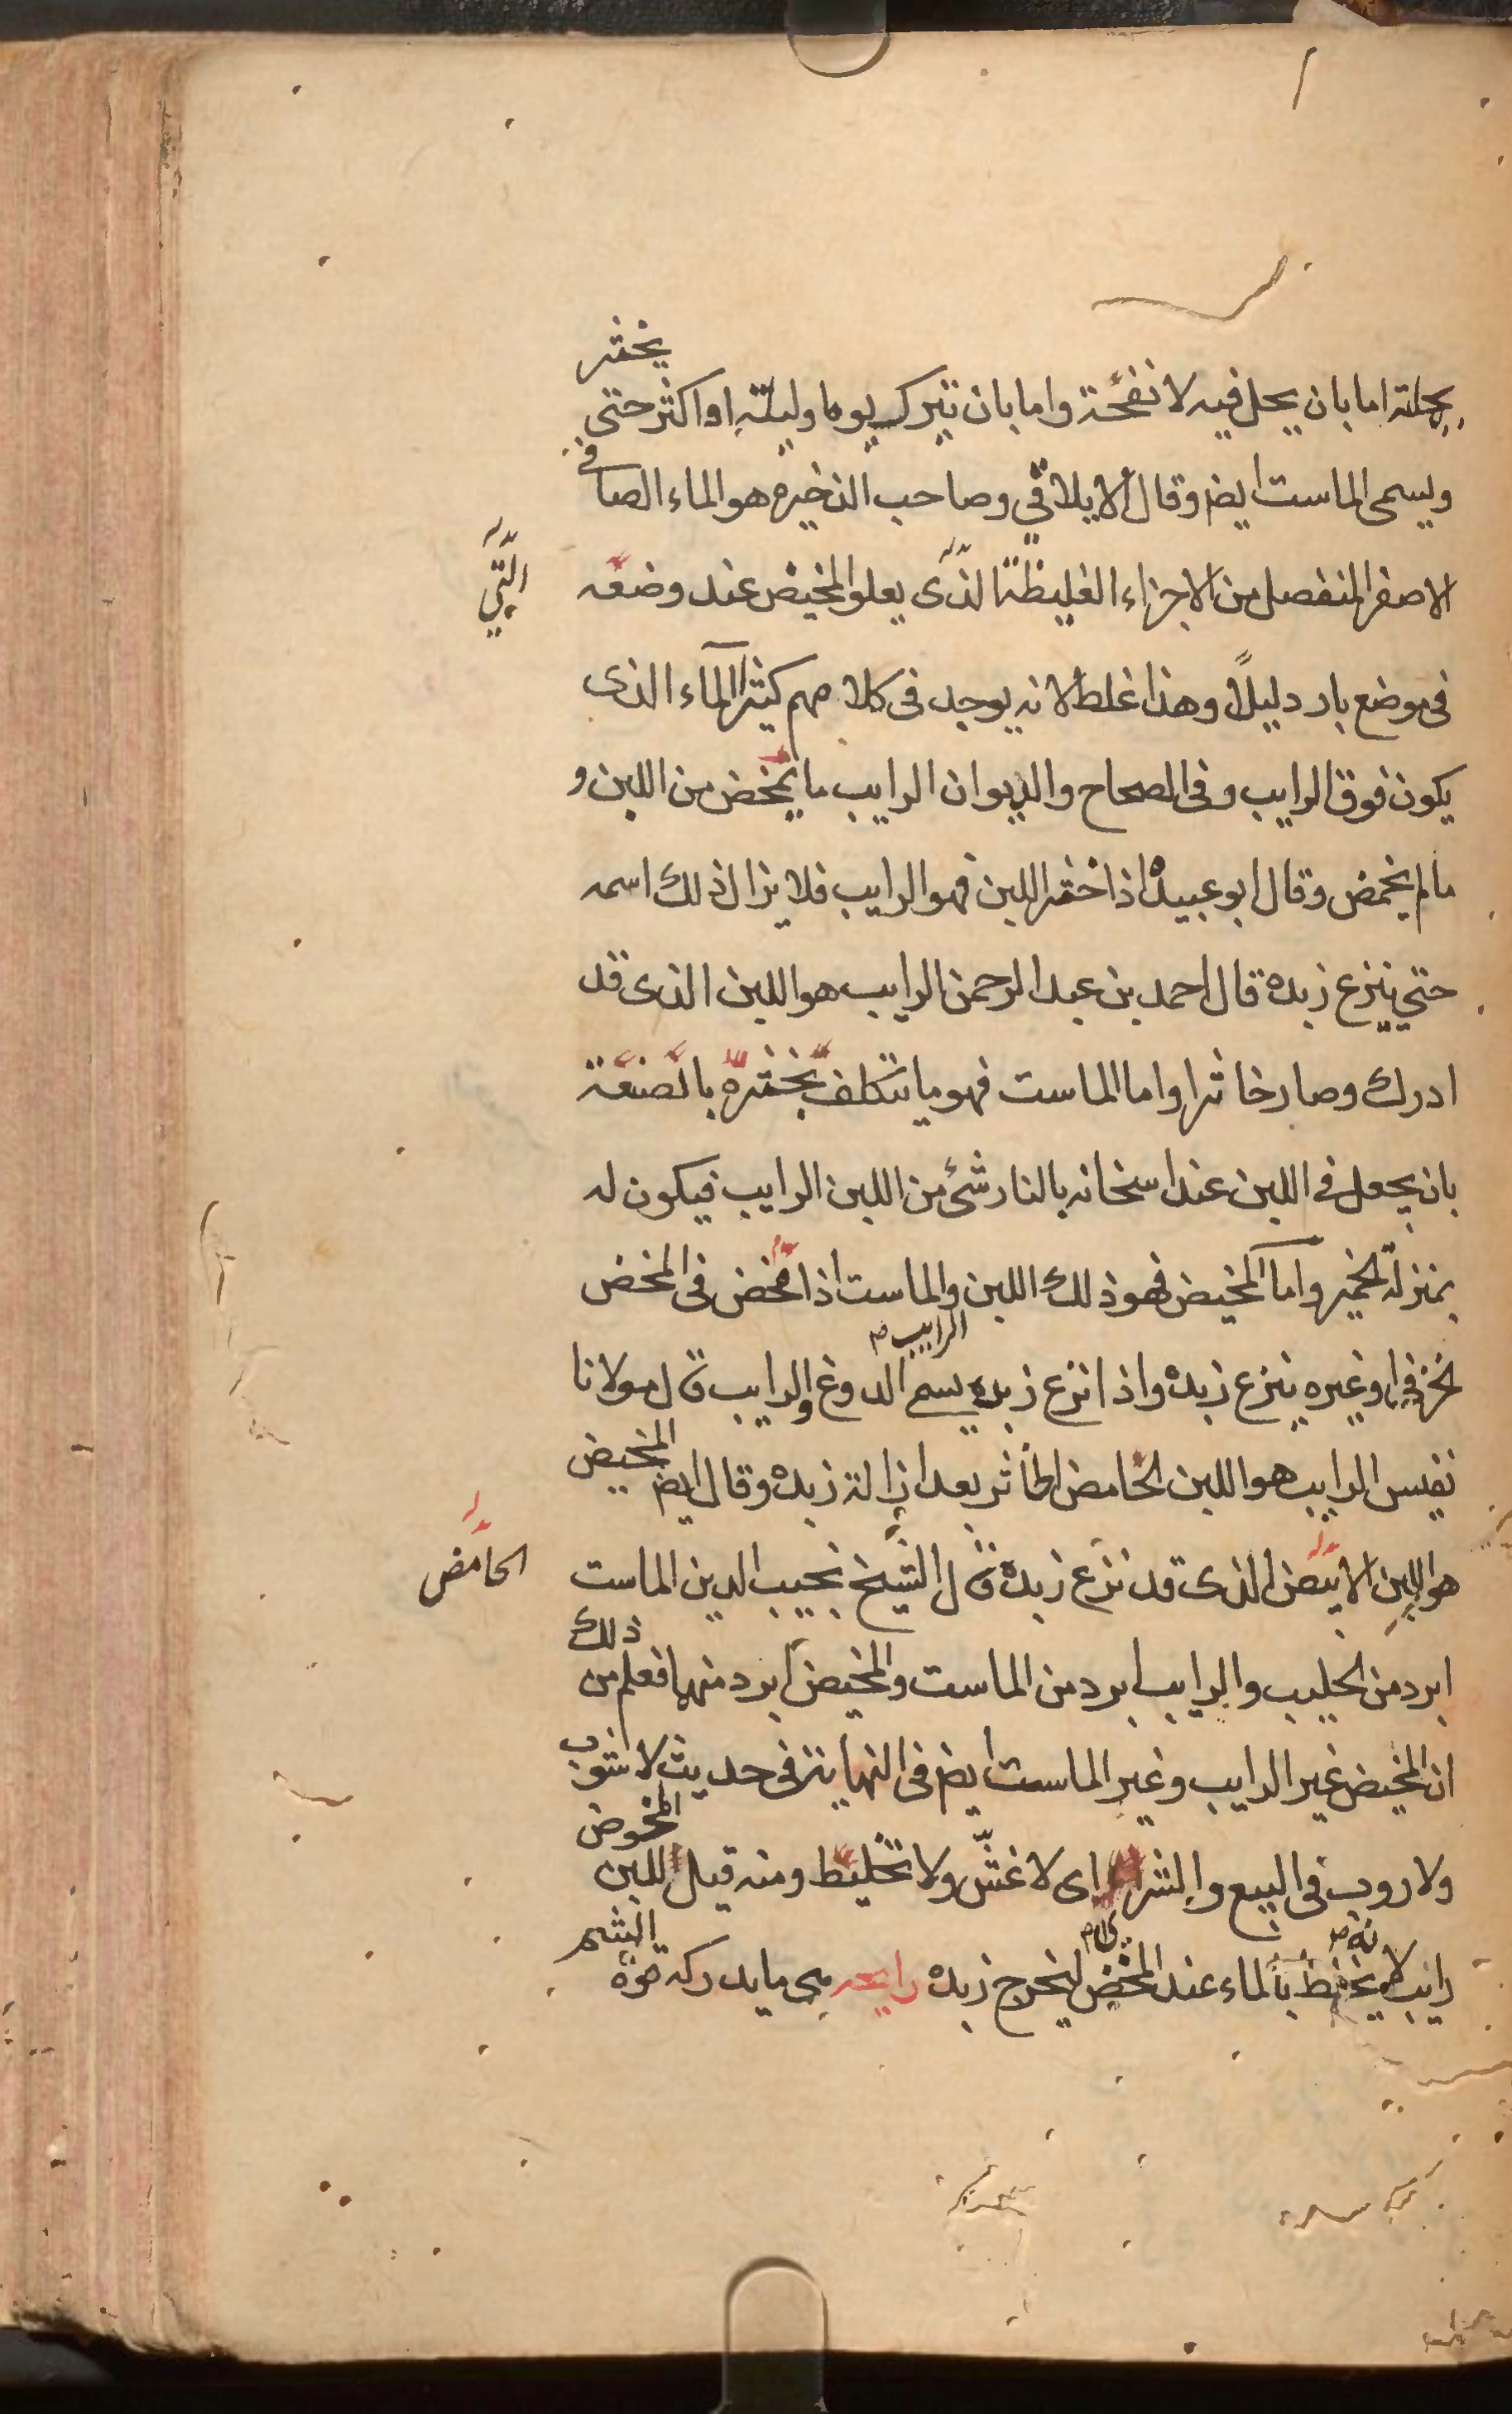 بجملته اما بان يحل فيه لانفحة واما بان يترك يوما وليلة او اكثر حتى يخثر
ويسمى الماست ايضر وقال الايلاقي وصاحب الذخيره هو الماء الصافي
الاصفر المنفصل من الاجزاء الغليظة الذى يعلو المخيض عند وضعه
التي
فى موضع بارد ليلا وهذا غلط لانه يوجد فى كلامهم كثيرا الماء الذى
يكون فوق الرايب وفى الصحاح والديوان الرايب ما يمخض من اللبن و
مالم يخمض وقال ابو عبيده اذا خثر اللبن فهو الرايب فلا يزال ذلك اسمه
حتي ينزع زبده قال احمد بن عبد الرحمن الرايب هو اللبن الذى قد
ادرك وصار خاثرا واما الماست فهو ما يتكلف بخثره بالصنعة
بان يجعل فى اللبن عند اسخانه بالنار شئ من اللبن الرايب فيكون له
بمنزلة الخمير واما المخيض فهو ذلك اللبن والماست اذا مخض فى المخض
الخزفي او غيره ينزع زبده واذا نزع زبده يسمي الدوغ والرايب قال مولانا
الرايب
نفيس الرايب هو اللبن الحامض الخاثر بعد ازالة زبده وقال ايضر المخيض
هو اللبن الابيض الذى قد نزع زبده قال الشيخ نجيب الدين الماست
الحامض
ابرد من الحليب والرايب ابرد من الماست والمخيض ابرد منهما فعلم من ذلك
ان المخيض غير الرايب وغير الماست ايضر فى النهاية فى حديث لا شوب
ولا روب فى البيع والشراء اى لا غش ولا تخليط ومنه قيل للبن المخوض
رايب لانه يخلط بالماء عند المخض ليخرج زبده رايحه هى ما يدركه قوة الشم